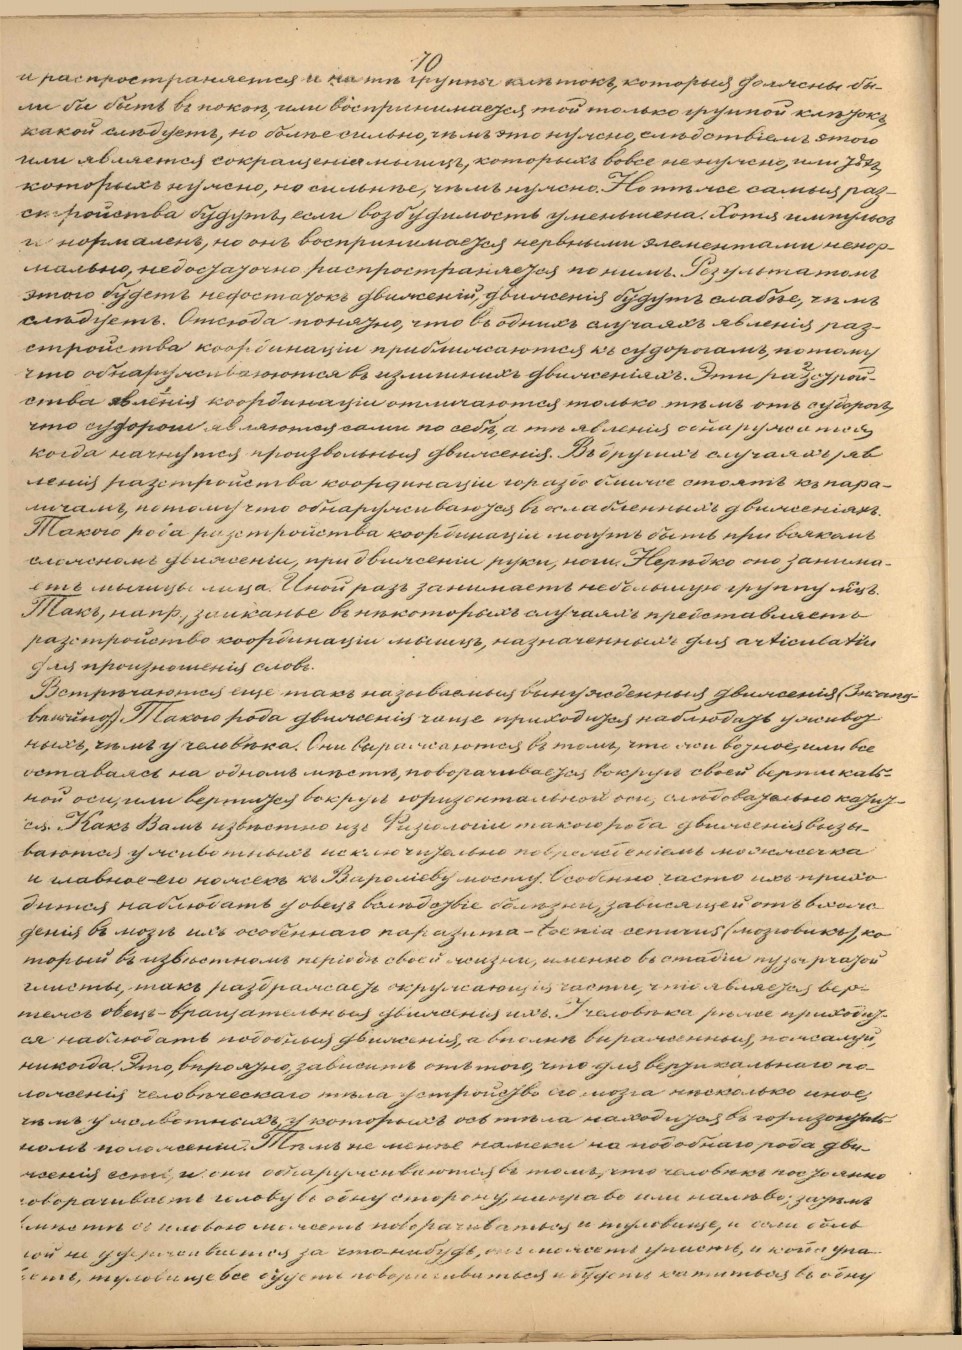 70
и распространяется и на тѣ группы клѣтокъ, которыя должны бы-
ли бы быть въ покоѣ, или воспринимается той только группой клѣтокъ,
какой слѣдуетъ, но болѣе сильно, чѣмъ это нужно, слѣдствіемъ этого
или является сокращенія мышцъ, которыхъ вовсе не нужно, или
которыхъ нужно, но сильнѣе, чѣмъ нужно. Но тѣ же самыя раз-
стройства будутъ, если возбудимость уменьшена. Хотя импульсъ
и нормаленъ, но онъ воспринимается нервными элементами ненор-
мально, недостаточно распространяется по нимъ. Результатомъ
этого будетъ недостатокъ движеній, движенія будутъ слабѣе, чѣмъ
слѣдуетъ. Отсюда понятно, что въ однихъ случаяхъ явленія раз-
стройства координаціи приближаются къ судорогамъ, потому
что обнаруживаются въ излишнихъ движеніяхъ. Эти разстрой-
ства явленія координаціи отличаются только тѣмъ отъ судорогъ,
что судороги являются сами по себѣ, а тѣ явленія обнаружатся,
когда начнутся произвольныя движенія. Въ другихъ случаяхъ яв
ленія разстройства координаціи гораздо ближе стоятъ къ пара-
личамъ, потому что обнаруживаются въ ослабленныхъ движеніяхъ.
Такого рода разстройства координаціи могутъ быть при всякомъ
сложномъ движеніи, при движеніи руки, ноги. Нерѣдко оно занима-
етъ мышцы лица. Иной разъ занимаетъ небольшую группу мцъ.
Такъ, напр., заиканье въ нѣкоторыхъ случаяхъ представляетъ
разстройство координаціи мышцъ, назначенныхъ для articulatiu
для произношенія словъ.
Встрѣчаются еще такъ называемыя вынужденныя движенія (Zwangs-
Такого рода движенія чаще приходится наблюдать у живот-
ныхъ, чѣмъ у человѣка. Они выражаются въ томъ, что животное, или все
оставаясь на одномъ мѣстѣ, поворачивается вокругъ своей вертикаль-
ной оси, или вертится вокругъ горизонтальной оси, слѣдовательно катит-
ся. Какъ Вамъ извѣстно изъ Физіологіи такого рода движенія вызы-
ваются у животныхъ исключительно поврежденіемъ мозжечка
и главное его ножекъ къ Вароліеву мосту. Особенно часто ихъ прихо
дится наблюдать у овецъ вслѣдствіе болѣзни, зависящей отъ вхож-
денія въ мозгъ ихъ особеннаго паразита - toenia cenurus (мозговикъ), ко
торый въ извѣстномъ періодѣ своей жизни, именно въ стадіи пузырчатой
глисты, такъ раздражаетъ окружающія части, что является вер-
тежъ овецъ - вращательныя движенія ихъ. У человѣка рѣже приходит-
ся наблюдать подобныя движенія, а вполнѣ выраженныя, пожалуй,
никогда. Это, вѣроятно, зависитъ отъ того, что для вертикальнаго по-
ложенія человѣческаго тѣла устройство его мозга нѣсколько иное,
чѣмъ у животныхъ, у которыхъ ось тѣла находится въ горизонталь-
номъ положеніи. Тѣмъ не менѣе намеки на подобнаго рода дви-
женія есть, и они обнаруживаются въ томъ, что человѣкъ постоянно
поворачиваетъ голову въ одну сторону, направо или налѣво; затѣмъ
вмѣстѣ съ головою можетъ поворачиваться и туловище, и если боль
ной не удерживается за что-нибудь, онъ можетъ упасть, и когда упа-
детъ, туловище все будетъ поворачиваться и будетъ катиться въ одну